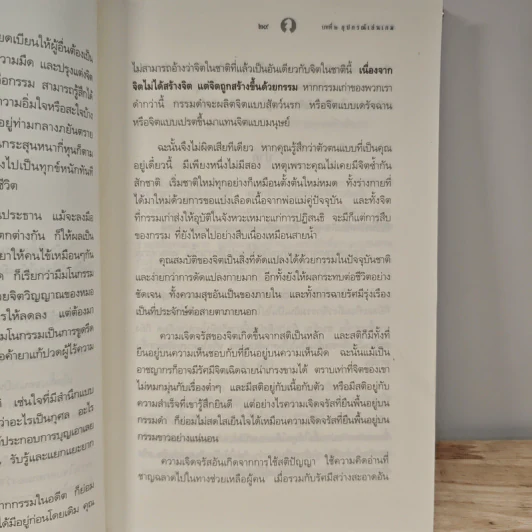 ยดเบียนให้ผู้อื่นต้องเป็น
วามมืด และปรุงแต่งจิต
อกรรม สามารถรู้สึกได้
วามอิ่มใจหรือสะใจบ้าง
อยู่ท่ามกลางภยันตราย
กระสุนหนากี่หุนก็ตาม
งไปเป็นทุกข์หนักทันที
ชีวิต
ประธาน แม้จะลงมือ
ตกต่างกัน ก็ให้ผลเป็น
ยาให้คนไข้เหมือนๆกัน
ด ก็เรียกว่ามีมโนกรรม
วยจิตวิญญาณของหมอ
รให้ลดลง แต่ต้องมา
มโนกรรมเป็นการขูดรีด
อค้ายาแก้ปวดผู้ไร้ความ
เช่นใจที่มีสำนึกแบบ
ว่าอะไรเป็นกุศล อะไร
ประกอบการบุญเอาเลย
รับรู้และแยกแยะยาก
กกรรมในอดีต ก็ย่อม
ได้มีอยู่ก่อนโดยเดิม คุณ
๒๙
ไม่สามารถอ้างว่าจิตในชาติที่แล้วเป็นอันเดียวกับจิตในชาตินี้ เนื่องจาก
จิตไม่ได้สร้างจิต แต่จิตถูกสร้างขึ้นด้วยกรรม หากกรรมเก่าของพวกเรา
ดำกว่านี้ กรรมดำจะผลิตจิตแบบสัตว์นรก หรือจิตแบบเดรัจฉาน
หรือจิตแบบเปรตขึ้นมาแทนจิตแบบมนุษย์
ฉะนั้นจึงไม่ผิดเสียทีเดียว หากคุณรู้สึกว่าตัวตนแบบที่เป็นคุณ
อยู่เดี๋ยวนี้ มีเพียงหนึ่งไม่มีสอง เหตุเพราะคุณไม่เคยมีจิตซ้ำกัน
สักชาติ เริ่มชาติใหม่ทุกอย่างก็เหมือนตั้งต้นใหม่หมด ทั้งร่างกายที่
ได้มาใหม่ด้วยการขอแบ่งเลือดเนื้อจากพ่อแม่คู่ปัจจุบัน และทั้งจิต
ที่กรรมเก่าส่งให้อุบัติในจังหวะเหมาะแก่การปฏิสนธิ จะมีก็แต่การสืบ
ของกรรม ที่ยังไหลไปอย่างสืบเนื่องเหมือนสายน้ำ
คุณสมบัติของจิตเป็นสิ่งที่ดัดแปลงได้ด้วยกรรมในปัจจุบันชาติ
และง่ายกว่าการดัดแปลงกายมาก อีกทั้งยังให้ผลกระทบต่อชีวิตอย่าง
ชัดเจน ทั้งความสุขอันเป็นของภายใน และทั้งการฉายรัศมีรุ่งเรือง
เป็นที่ประจักษ์ต่อสายตาภายนอก
ความเจิดจรัสของจิตเกิดขึ้นจากสติเป็นหลัก และสติก็มีทั้งที่
ยืนอยู่บนความเห็นชอบกับที่ยืนอยู่บนความเห็นผิด ฉะนั้นแม้เป็น
อาชญากรก็อาจมีรัศมีจิตเฉิดฉายน่าเกรงขามได้ ตราบเท่าที่จิตของเขา
ไม่หมกมุ่นกับเรื่องต่ำๆ และมีสติอยู่กับเนื้อกับตัว หรือมีสติอยู่กับ
ความสำเร็จที่เขารู้สึกยินดี แต่อย่างไรความเจิดจรัสที่ยืนพื้นอยู่บน
กรรมดำ ก็ย่อมไม่สดใสเย็นใจได้เหมือนความเจิดจรัสที่ยืนพื้นอยู่บน
กรรมขาวอย่างแน่นอน
ความเจิดจรัสอันเกิดจากการใช้สติปัญญา ใช้ความคิดอ่านที่
ชาญฉลาดไปในทางช่วยเหลือผู้คน เมื่อรวมกับรัศมีสว่างสะอาดอัน